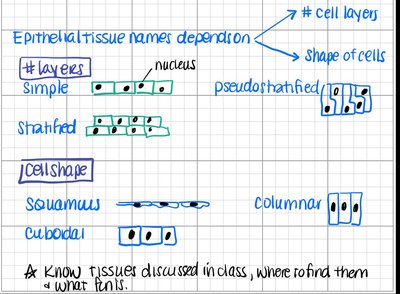 # cell layers
Epithelial tissue names depends on
shape of cells
# layers
nucleus
simple
pseudostratified
stratified
cell shape
squamous
columnar
cuboidal
☆ Know tissues discussed in class, where to find them
& what fun is.